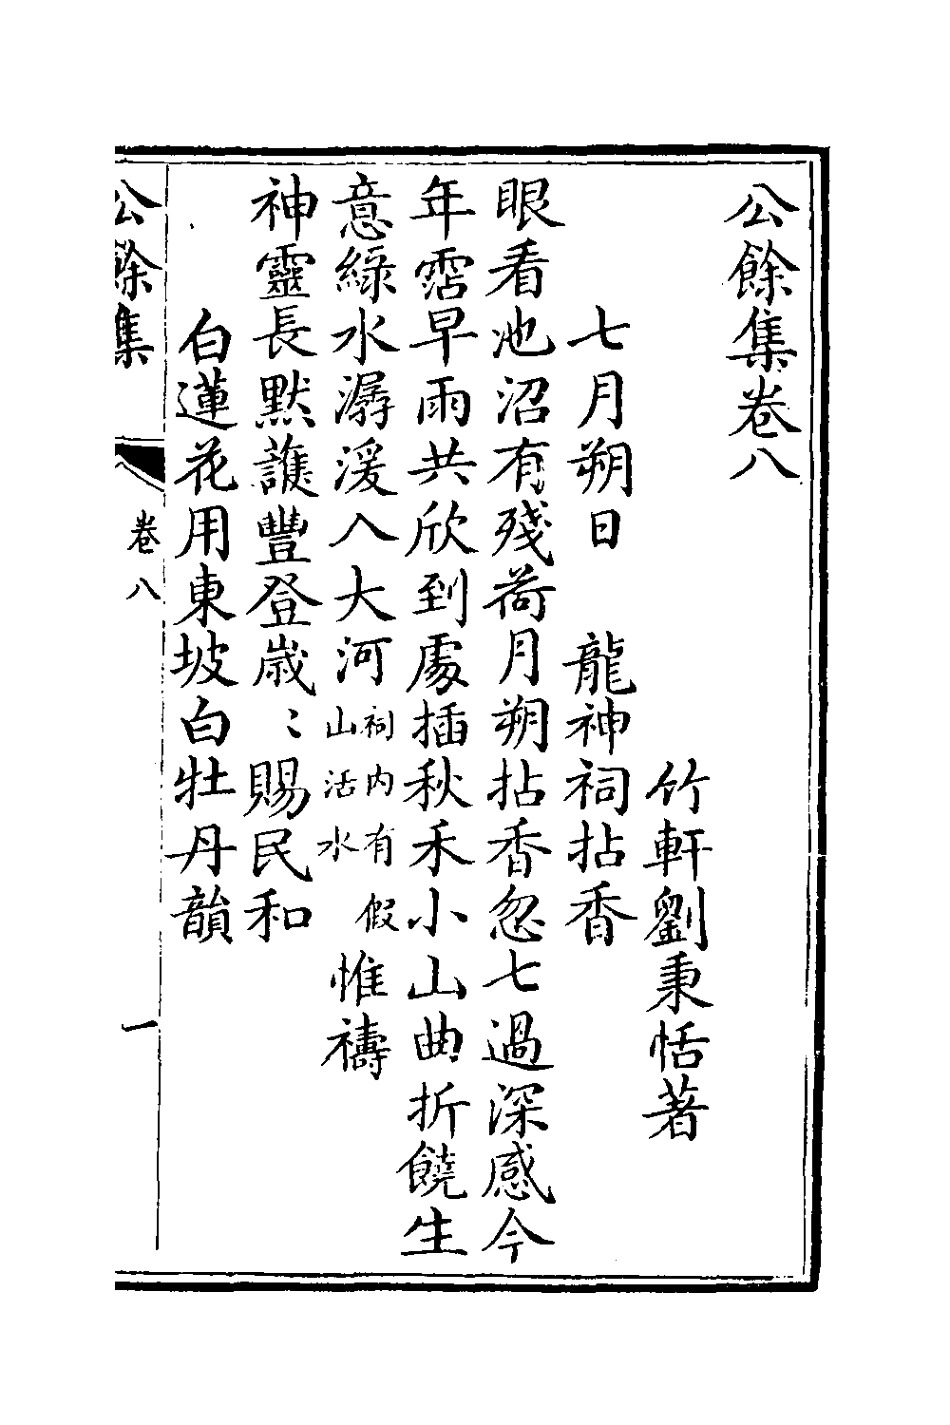 公餘集卷八
竹軒劉秉恬著
七月朔日　龍神祠拈香
眼看池沼有殘荷月朔拈香忽七過深感今
年霑早雨共欣到處插秋禾小山曲折饒生
意綠水潺湲入大河祠内有假山活水惟禱
神靈長默護豐登歲〻賜民和
白蓮花用東坡白牡丹韻
公餘集
卷八
一